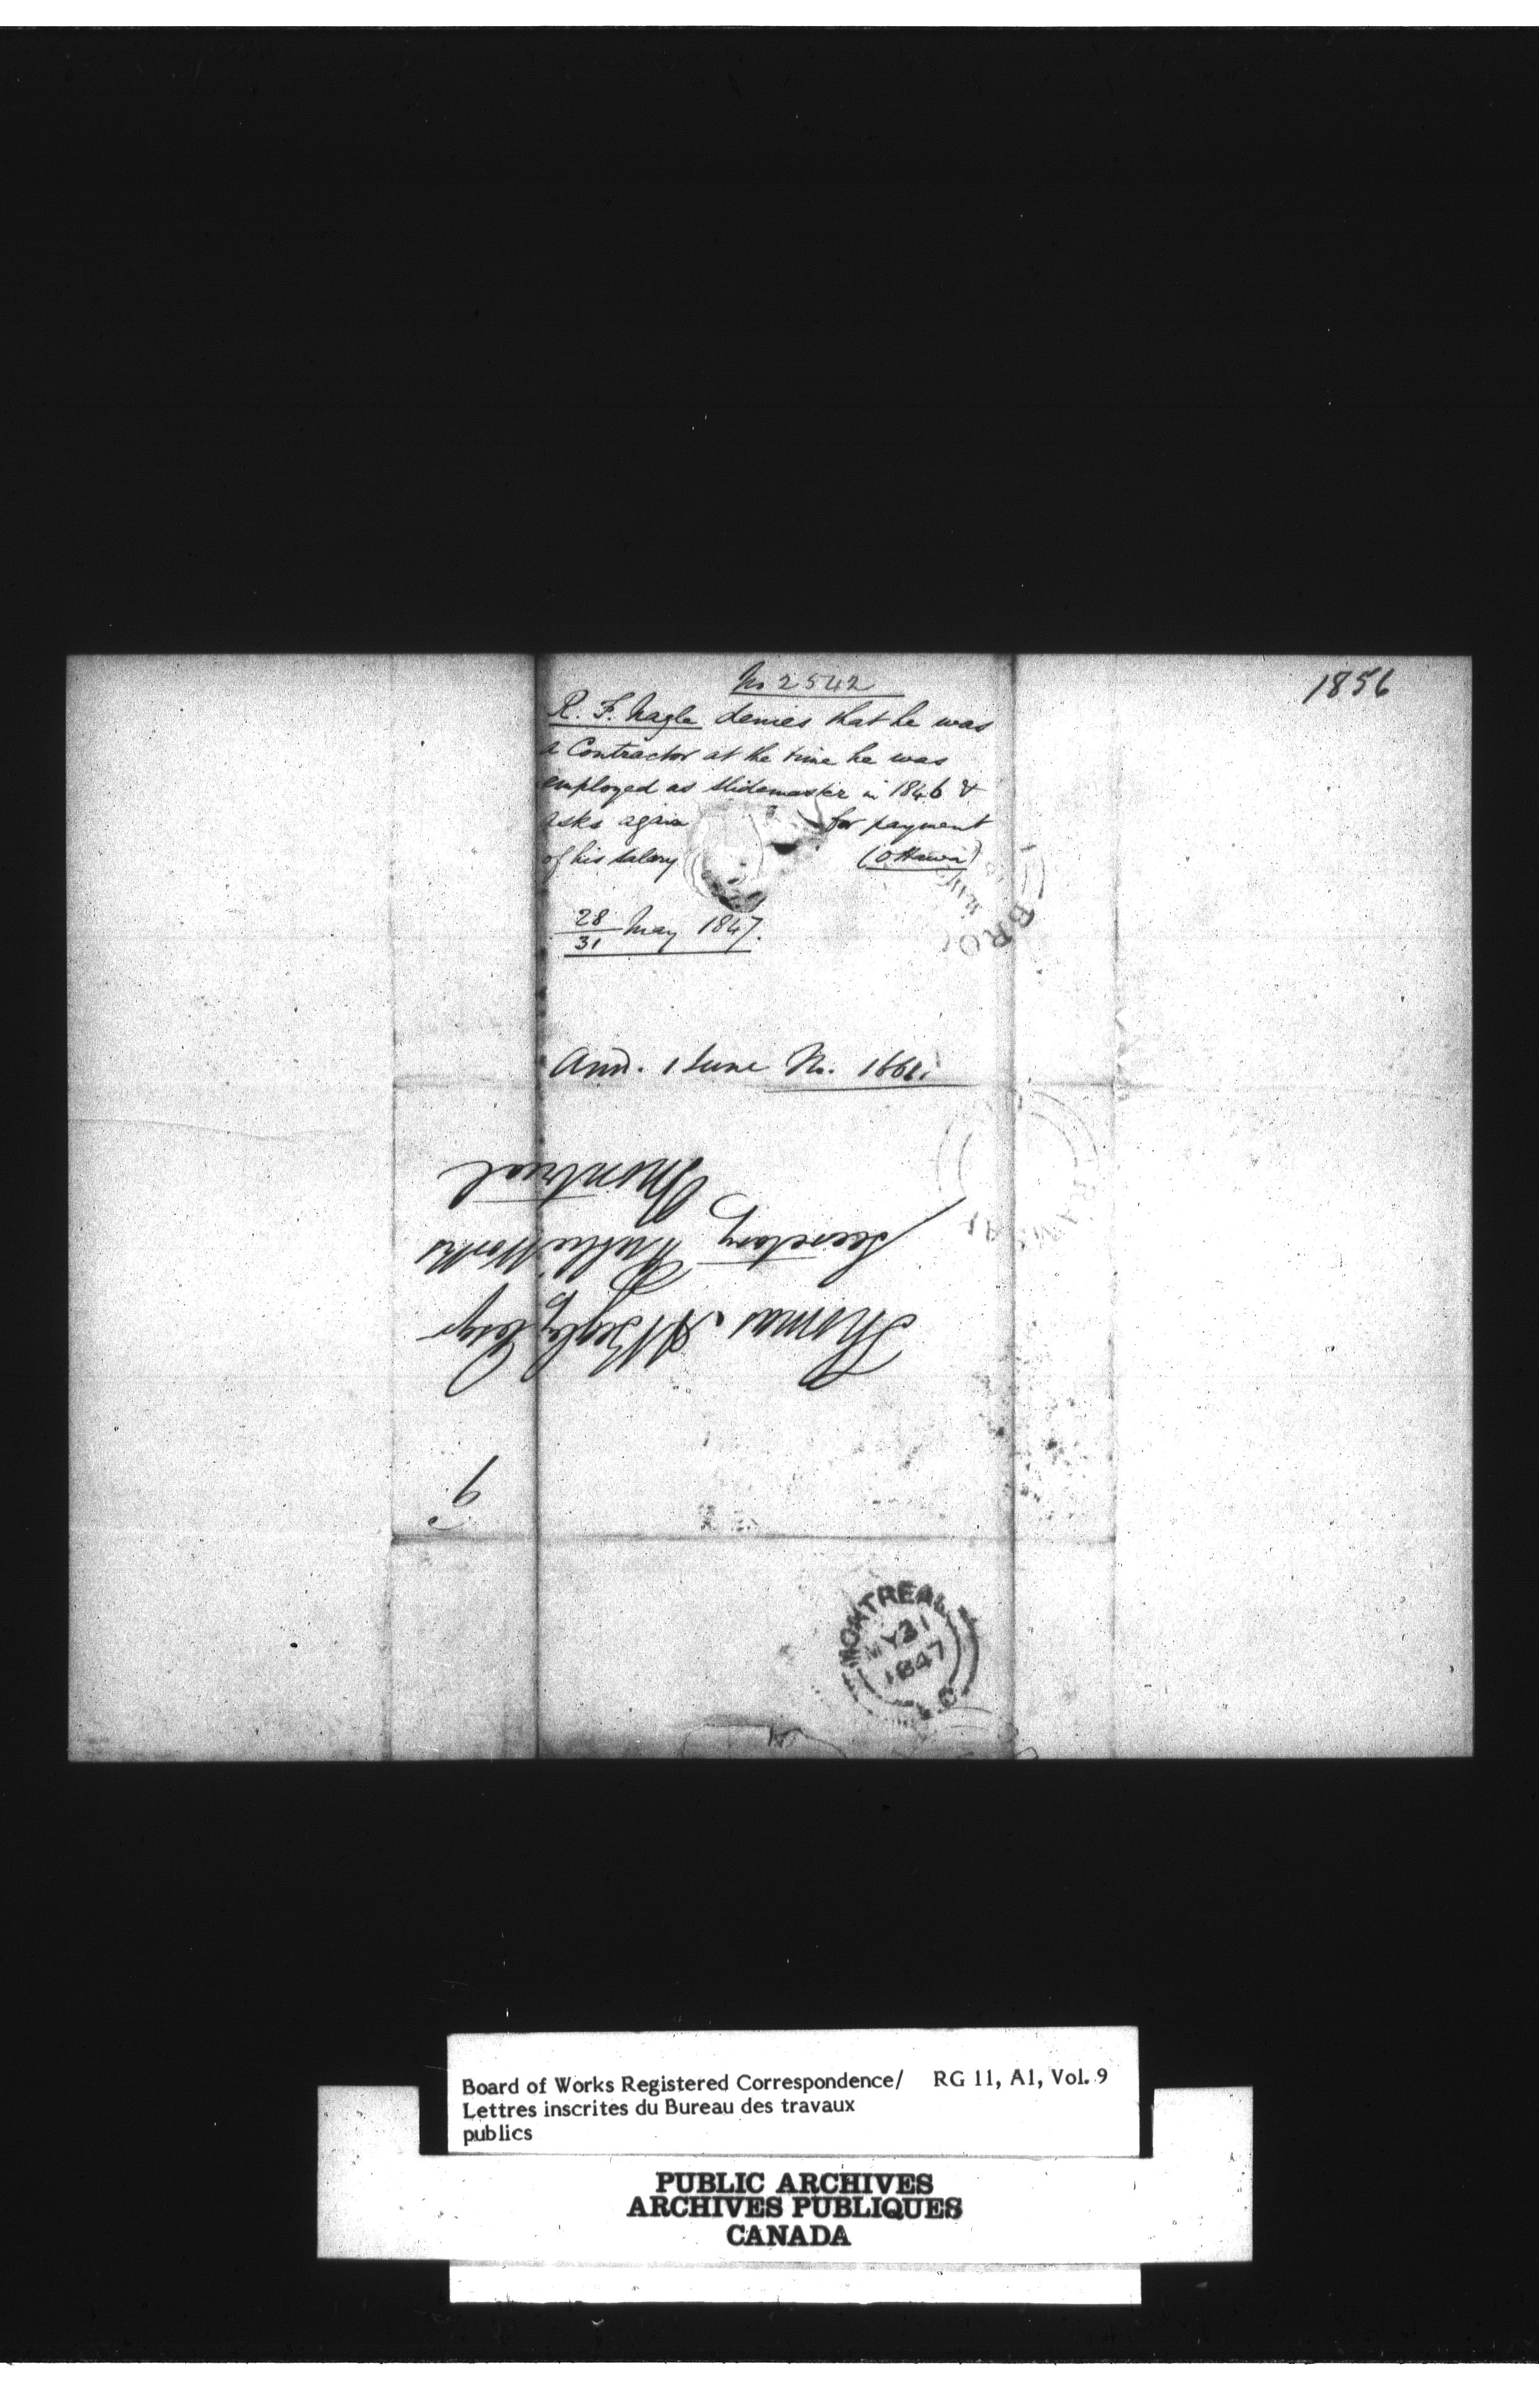 1856
No 2542
R. F. Nagle denies that he was
a Contractor at the time he was
employed as Slidemaster in 1846 &
asks again for payment
of his salary (Ottawa)
28
31 May 1847.
Ansd. 1 June No.
Thomas A Begly Esqr
Secretary Public Works
Montreal
9
MONTREAL
MY 31
1847
C
BRO
Board of Works Registered Correspondence/ RG 11, A1, Vol. 9
Lettres inscrites du Bureau des travaux
publics
PUBLIC ARCHIVES
ARCHIVES PUBLIQUES
CANADA